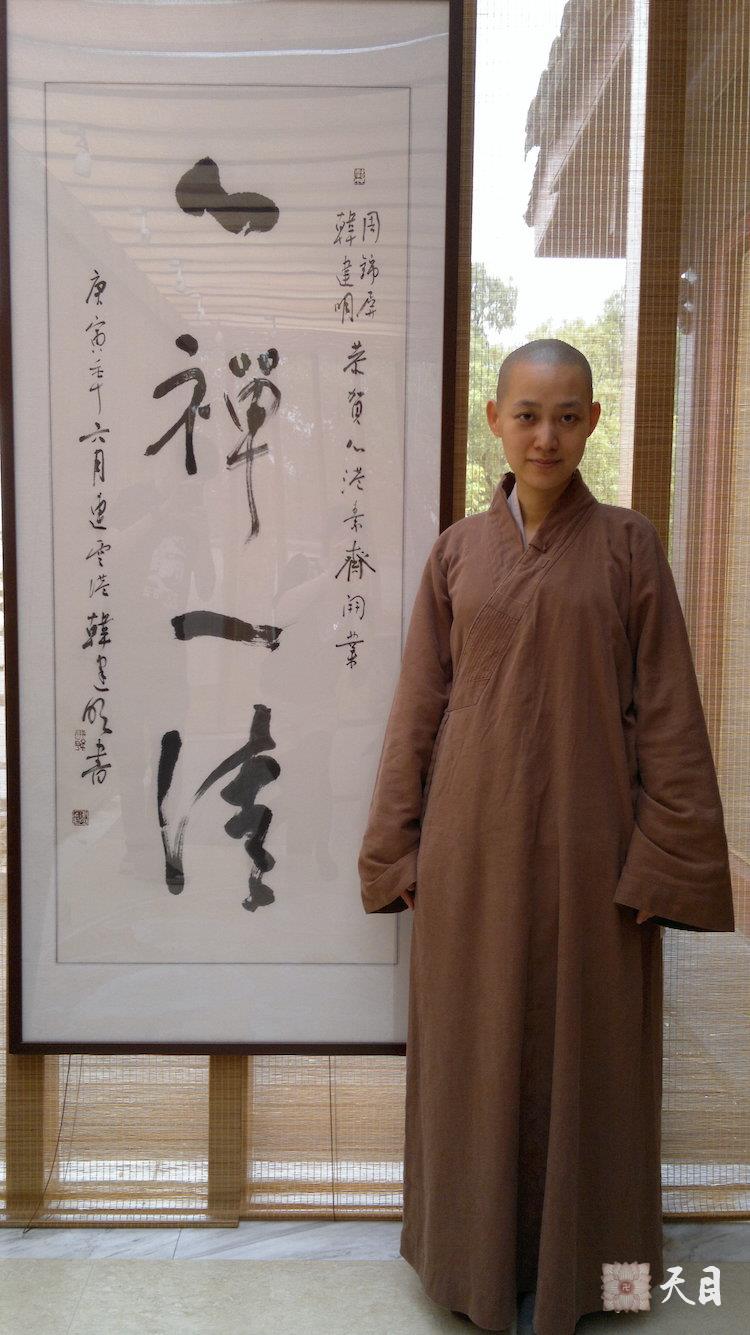 周錦屏
韓建明
恭賀心港素齋開業
心禪一清
庚寅年六月連雲港韓建明書
天目